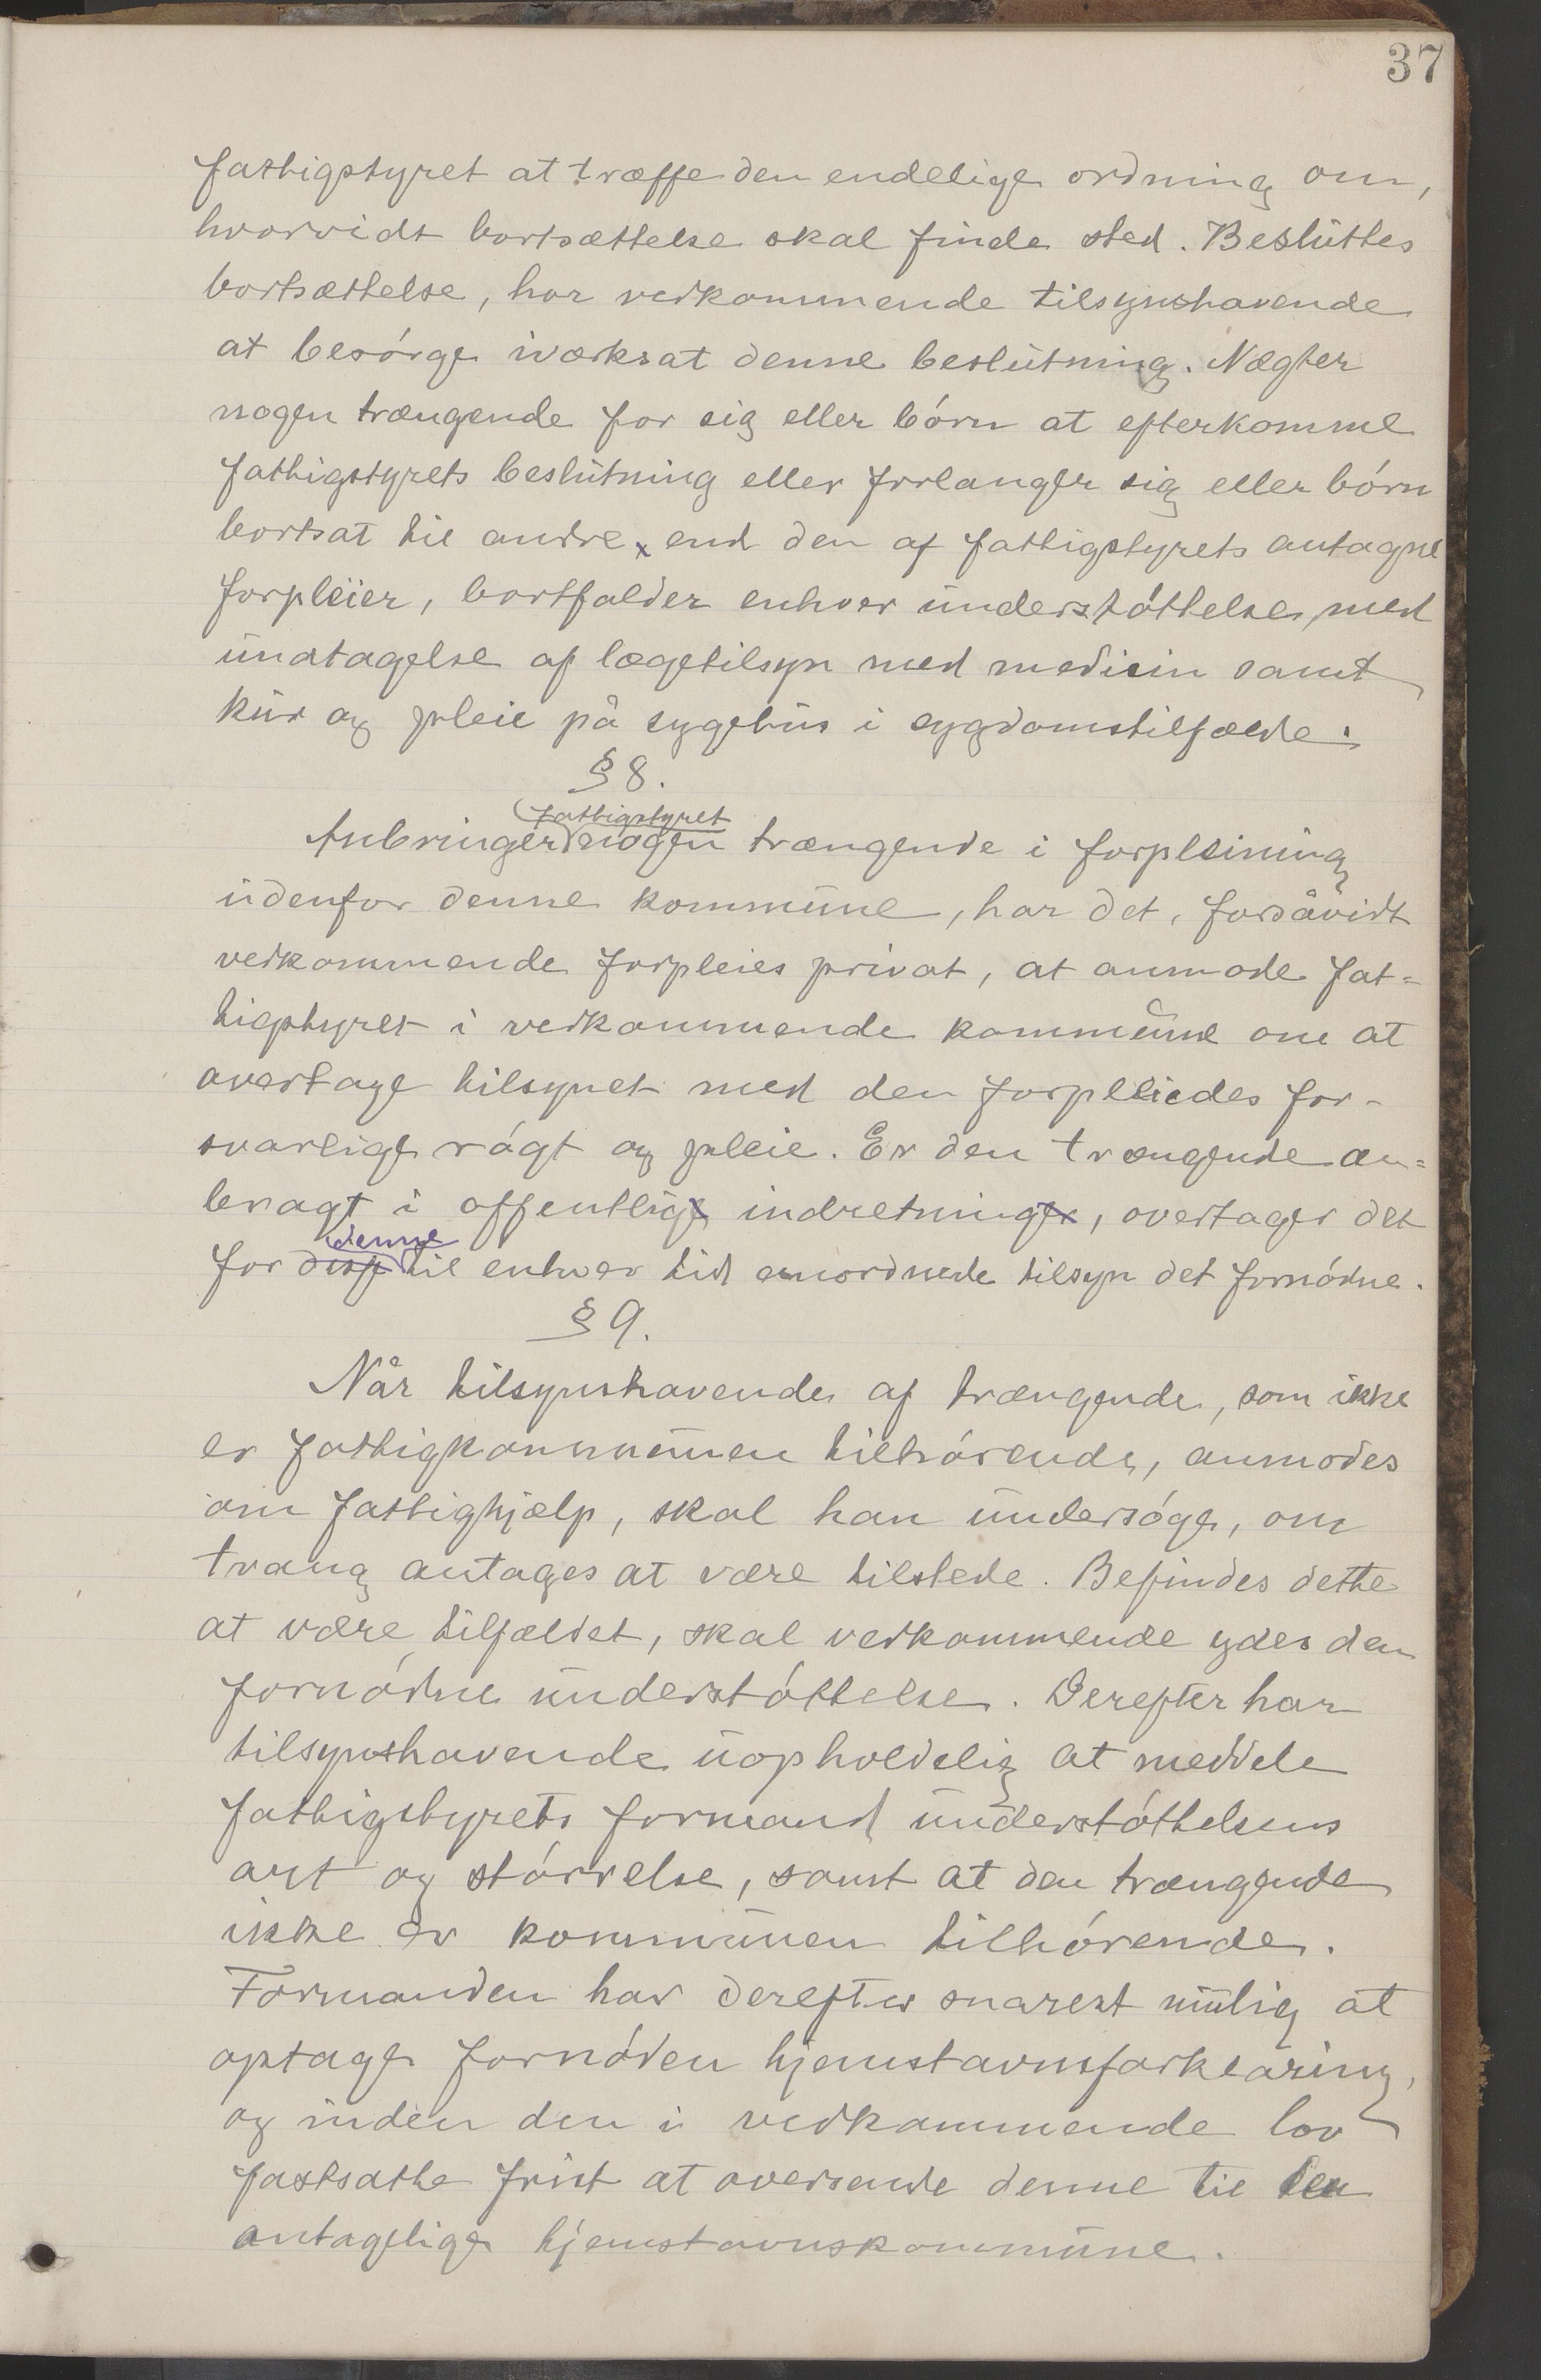 37
fattigstyret at træffe den endelige ordning om,
hvorvidt bortsættelse skal finde sted. Besluttes
bortsættelse, har vedkommende tilsynshavende
at besørge iværksat denne beslutning. Nægter
nogen trængende for sig eller børn at efterkomme
fattigstyrets beslutning eller forlanger sig eller børn
bortsat til andre, end den af fattigstyrets antagne
forpleier, bortfalder enhver understøttelse, med
undtagelse af lægetilsyn med medicin samt
kur og pleie på sygehus i sygdomstilfælde.
§ 8.
fattigstyret
Anbringer nogen trængende i forpleining
udenfor denne kommune, har det, forsåvidt
vedkommende forpleies privat, at anmode fat=
tigstyret i vedkommende kommune om at
overtage tilsynet med den forpleiedes for-
svarlige røgt og pleie. Er den trængende an=
bragt i offentlig indretning, overtager det
denne
for disse til enhver tid anordnede tilsyn det fornødne.
§ 9.
Når tilsynshavende af trængende, som ikke
er fattigkommunen tilhørende, anmodes
om fattighjælp, skal han undersøge, om
trang antages at være tilstede. Befindes dette
at være tilfældet, skal vedkommende ydes den
fornødne understøttelse. Derefter har
tilsynshavende uopholdelig at meddele
fattigstyrets formand understøttelsens
art og størrelse, samt at den trængende
ikke er kommunen tilhørende.
Formanden har derefter snarest mulig at
optage fornøden hjemstavnsforklaring,
og inden den i vedkommende lov
fastsatte frist at oversende denne til den
antagelige hjemstavnskommune.